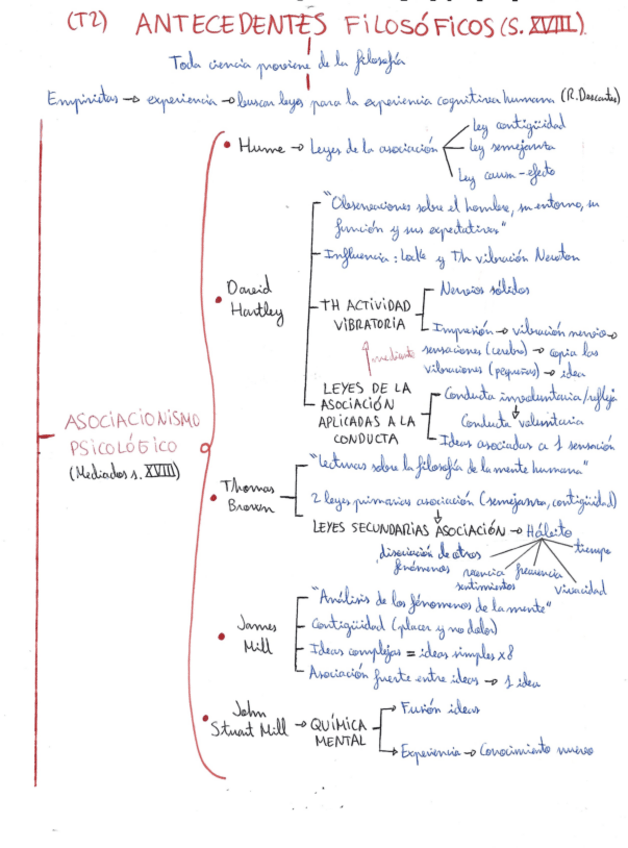 (T2) ANTECEDENTES FILOSÓFICOS (S. XVIII).
Toda ciencia proviene de la filosofía
Empiristas → experiencia → buscar leyes para la experiencia cognitiva humana (R. Descartes)
ASOCIACIONISMO
PSICOLÓGICO
(Mediados s. XVIII)
• Hume → Leyes de la asociación
Ley contigüidad
Ley semejanza
Ley causa-efecto
• David
Hartley
"Observaciones sobre el hombre, su entorno, su
función y sus expectativas"
Influencia: Locke y Th vibración Newton
TH ACTIVIDAD
VIBRATORIA
Nervios sólidos
Impresión → vibración nervio →
sensaciones (cerebro) → copia las
vibraciones (pequeñas) → idea
mediante
LEYES DE LA
ASOCIACIÓN
APLICADAS A LA
CONDUCTA
Conducta involuntaria/refleja
↓
Conducta voluntaria
Ideas asociadas a 1 sensación
• Thomas
Brown
"Lecturas sobre la filosofía de la mente humana"
2 leyes primarias asociación (semejanza, contigüidad)
↓
LEYES SECUNDARIAS ASOCIACIÓN → Hábito
disociación de otros
fenómenos
recencia
sentimientos
frecuencia
vivacidad
tiempo
• James
Mill
"Análisis de los fenómenos de la mente"
Contigüidad (placer y no dolor)
Ideas complejas = ideas simples x8
Asociación fuerte entre ideas → 1 idea
• John
Stuart Mill → QUÍMICA
MENTAL
Fusión ideas
Experiencia → Conocimiento nuevo